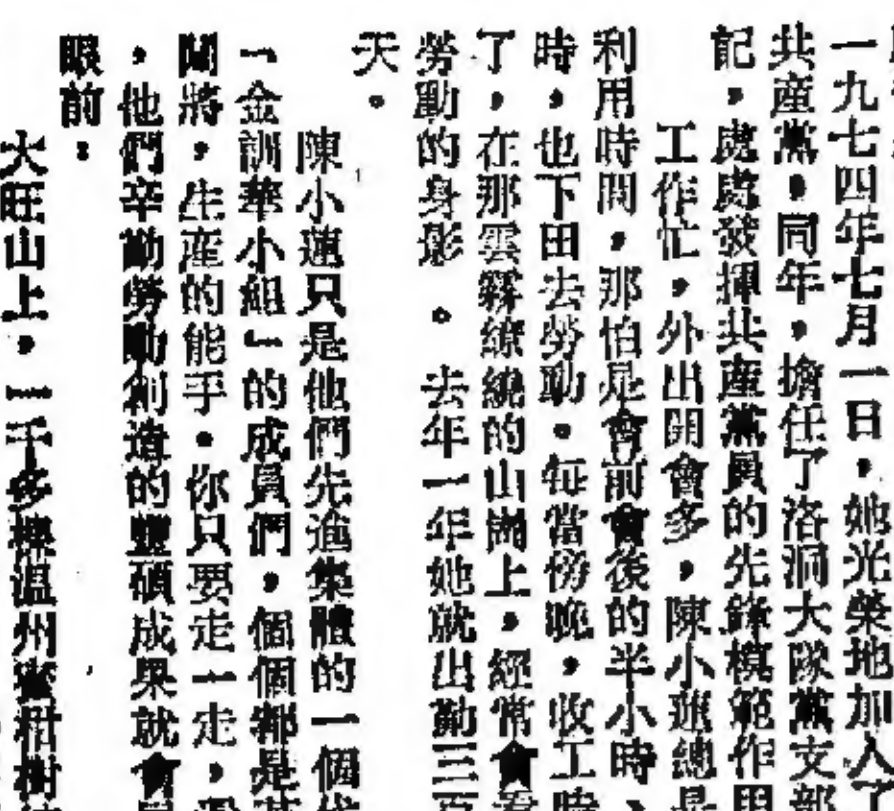 一九七四年七月一日，她光榮地加入了
共產黨，同年，擔任了洛洞大隊黨支部
記，處處發揮共產黨員的先鋒模範作用
工作忙，外出開會多，陳小蓮總是
利用時間，那怕是會前會後的半小時、
時，也下田去勞動。每當傍晚，收工時
了，在那雲霧繚繞的山崗上，經常會看
勞動的身影。去年一年她就出勤三百
天。
陳小蓮只是他們先進集體的一個
「金訓華小組」的成員們，個個都是
闖將，生產的能手。你只要走一走，
，他們辛勤勞動創造的豐碩成果就會
眼前：
大旺山上，一千多棵温州蜜柑樹